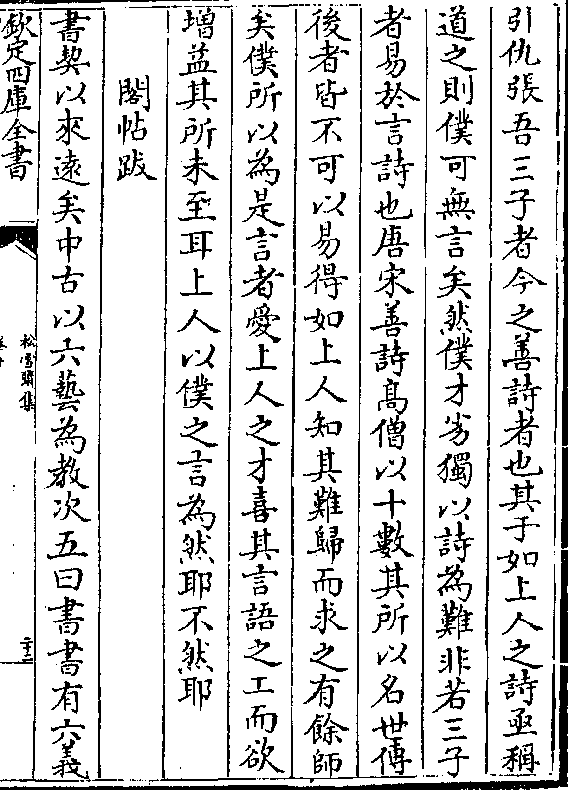 引仇張吾三子者今之善詩者也其于如上人之詩亟稱
道之則僕可無言矣然僕才劣獨以詩為難非若三子
者易於言詩也唐宋善詩髙僧以十數其所以名世傳
後者皆不可以易得如上人知其難歸而求之有餘師
矣僕所以為是言者愛上人之才喜其言語之工而欲
增益其所未至耳上人以僕之言為然耶不然耶
閣帖跋
書契以來逺矣中古以六藝為教次五曰書書有六義
欽定四庫全書
松雪齋集